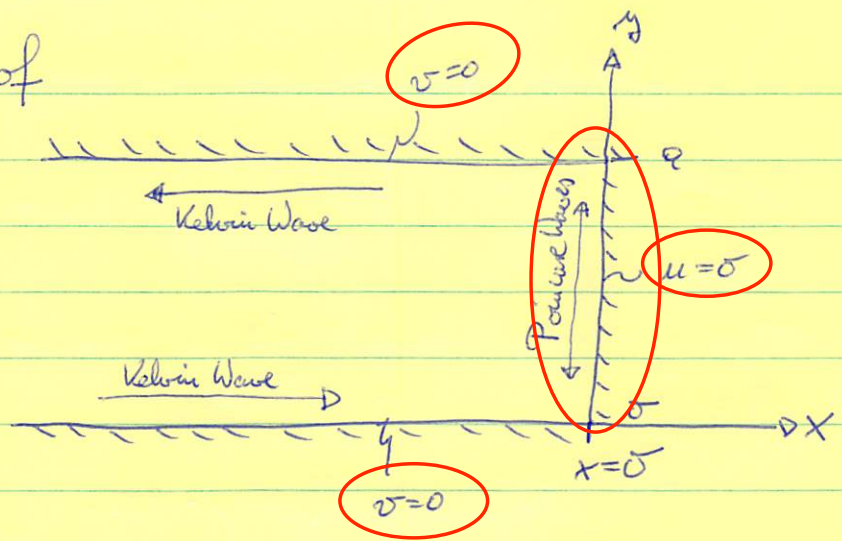 y
of
v=0
a
Kelvin Wave
Poincare Waves
u=0
Kelvin Wave
0
X
x=0
v=0